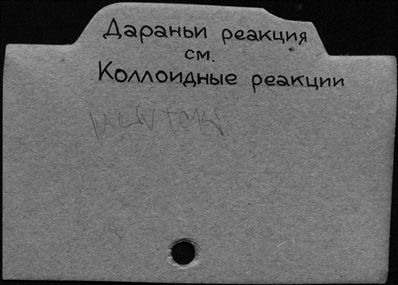 Дараньи реакция
см.
Коллоидные реакции